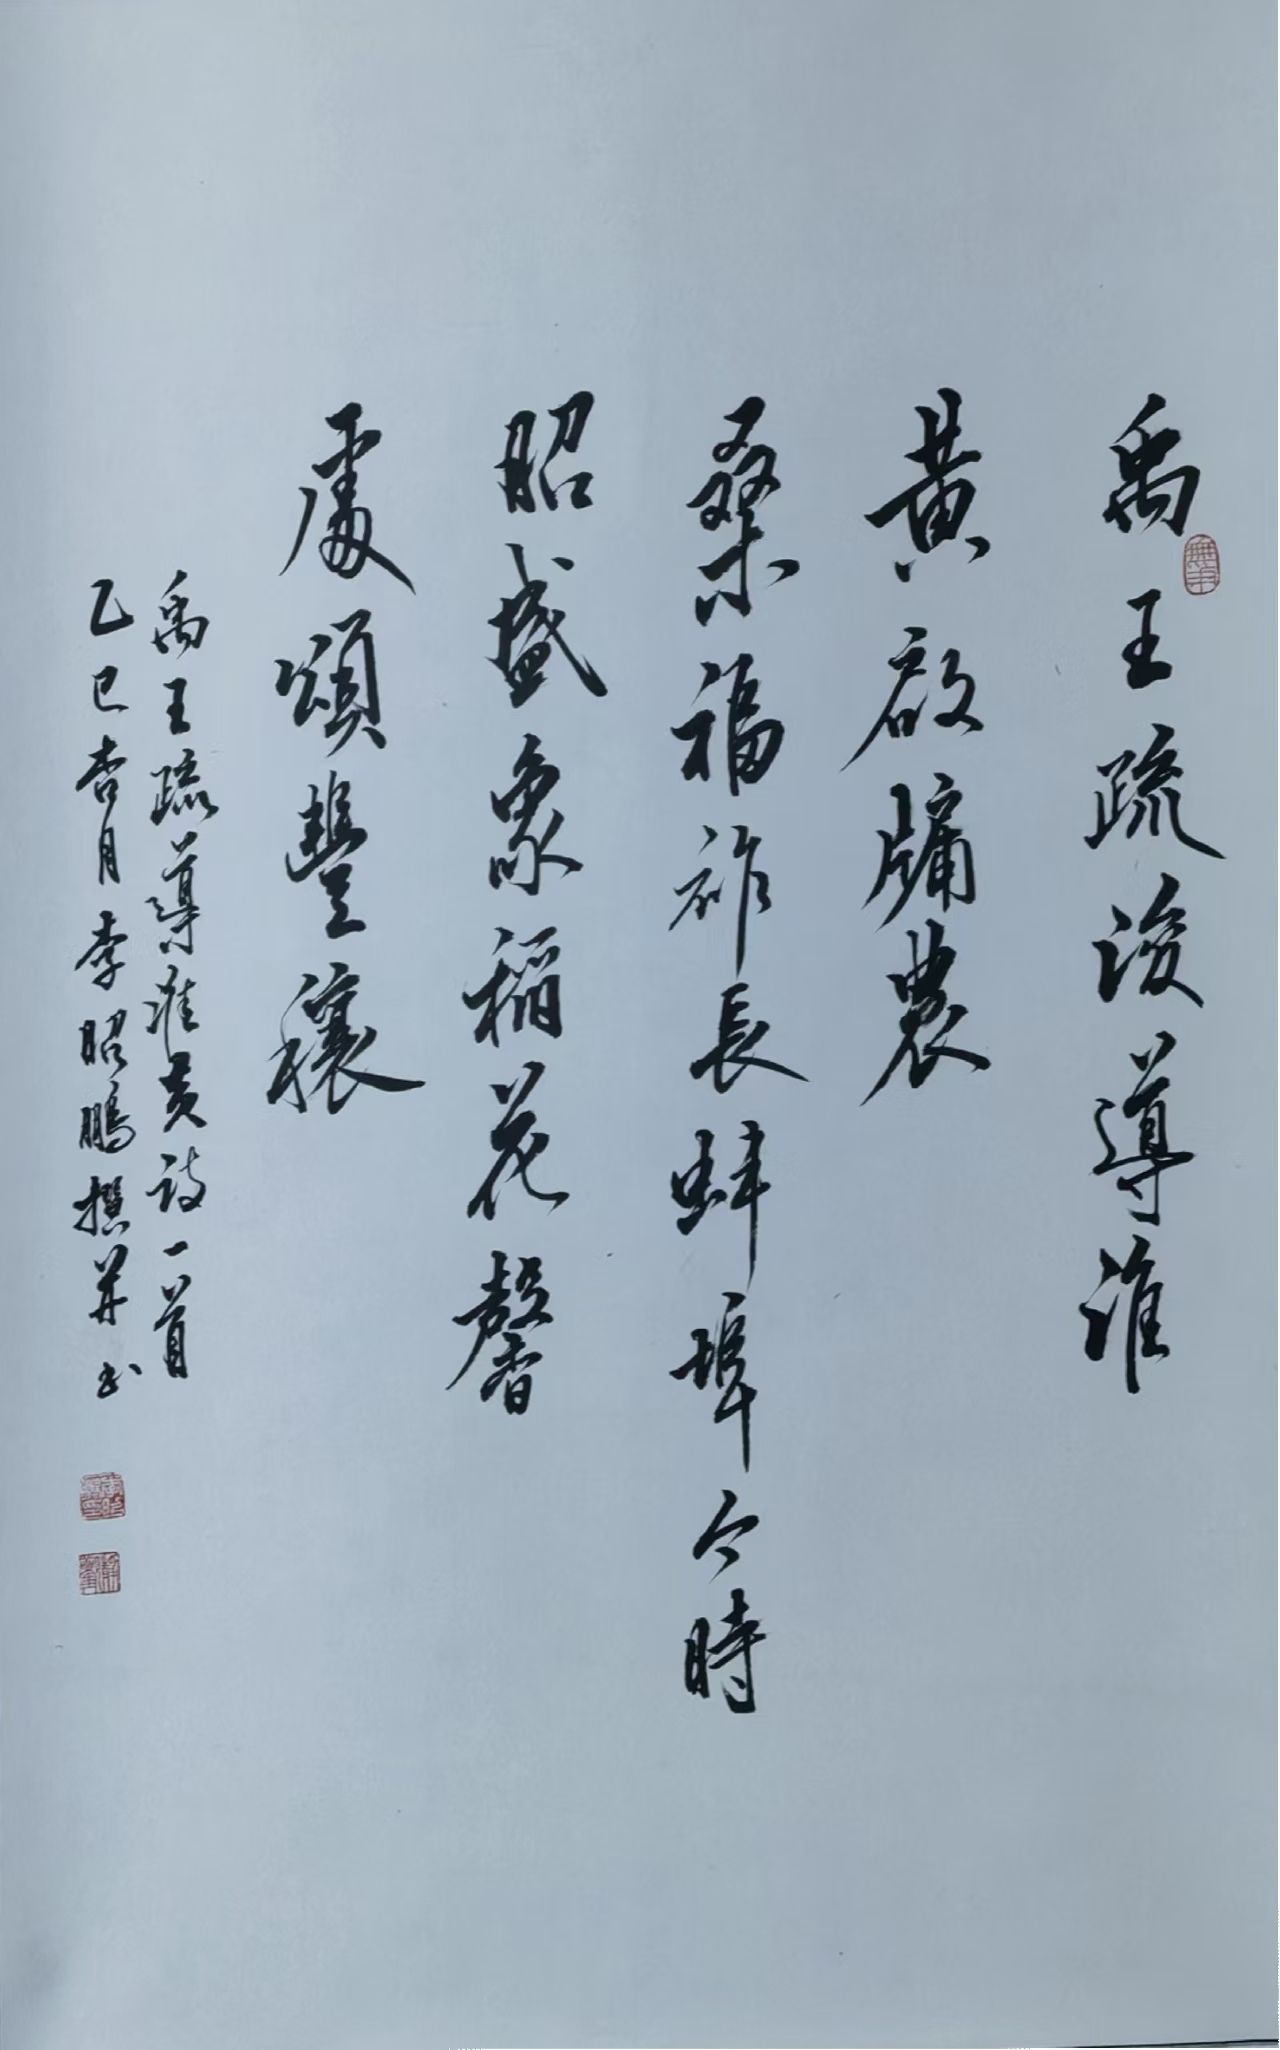 禹王疏浚導淮
黄啟牖農
桑福祚長蚌埠今時
昭盛象稻花馨
處頌豐穰
禹王疏導淮黄詩一首
乙巳杏月李昭鵬撰并书